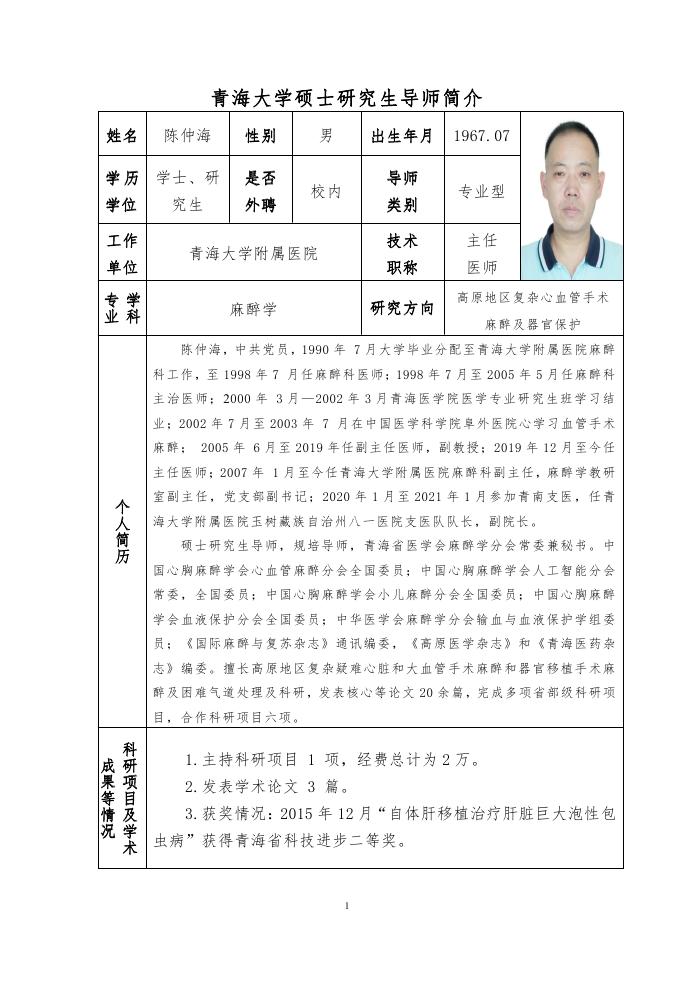 青海大学硕士研究生导师简介
姓名 陈仲海 性别 男 出生年月 1967.07
学历学位 学士、研究生 是否外聘 校内 导师类别 专业型
工作单位 青海大学附属医院 技术职称 主任医师
学科专业 麻醉学 研究方向 高原地区复杂心血管手术麻醉及器官保护
个人简历
陈仲海，中共党员，1990 年 7 月大学毕业分配至青海大学附属医院麻醉
科工作，至 1998 年 7 月任麻醉科医师；1998 年 7 月至 2005 年 5 月任麻醉科
主治医师；2000 年 3 月—2002 年 3 月青海医学院医学专业研究生班学习结
业；2002 年 7 月至 2003 年 7 月在中国医学科学院阜外医院心学习血管手术
麻醉； 2005 年 6 月至 2019 年任副主任医师，副教授；2019 年 12 月至今任
主任医师；2007 年 1 月至今任青海大学附属医院麻醉科副主任，麻醉学教研
室副主任，党支部副书记；2020 年 1 月至 2021 年 1 月参加青南支医，任青
海大学附属医院玉树藏族自治州八一医院支医队队长，副院长。
硕士研究生导师，规培导师，青海省医学会麻醉学分会常委兼秘书。中
国心胸麻醉学会心血管麻醉分会全国委员；中国心胸麻醉学会人工智能分会
常委，全国委员；中国心胸麻醉学会小儿麻醉分会全国委员；中国心胸麻醉
学会血液保护分会全国委员；中华医学会麻醉学分会输血与血液保护学组委
员；《国际麻醉与复苏杂志》通讯编委，《高原医学杂志》和《青海医药杂
志》编委。擅长高原地区复杂疑难心脏和大血管手术麻醉和器官移植手术麻
醉及困难气道处理及科研，发表核心等论文 20 余篇，完成多项省部级科研项
目，合作科研项目六项。
科研项目及学术成果等情况
1.主持科研项目 1 项，经费总计为 2 万。
2.发表学术论文 3 篇。
3.获奖情况：2015 年 12 月“自体肝移植治疗肝脏巨大泡性包
虫病”获得青海省科技进步二等奖。
1